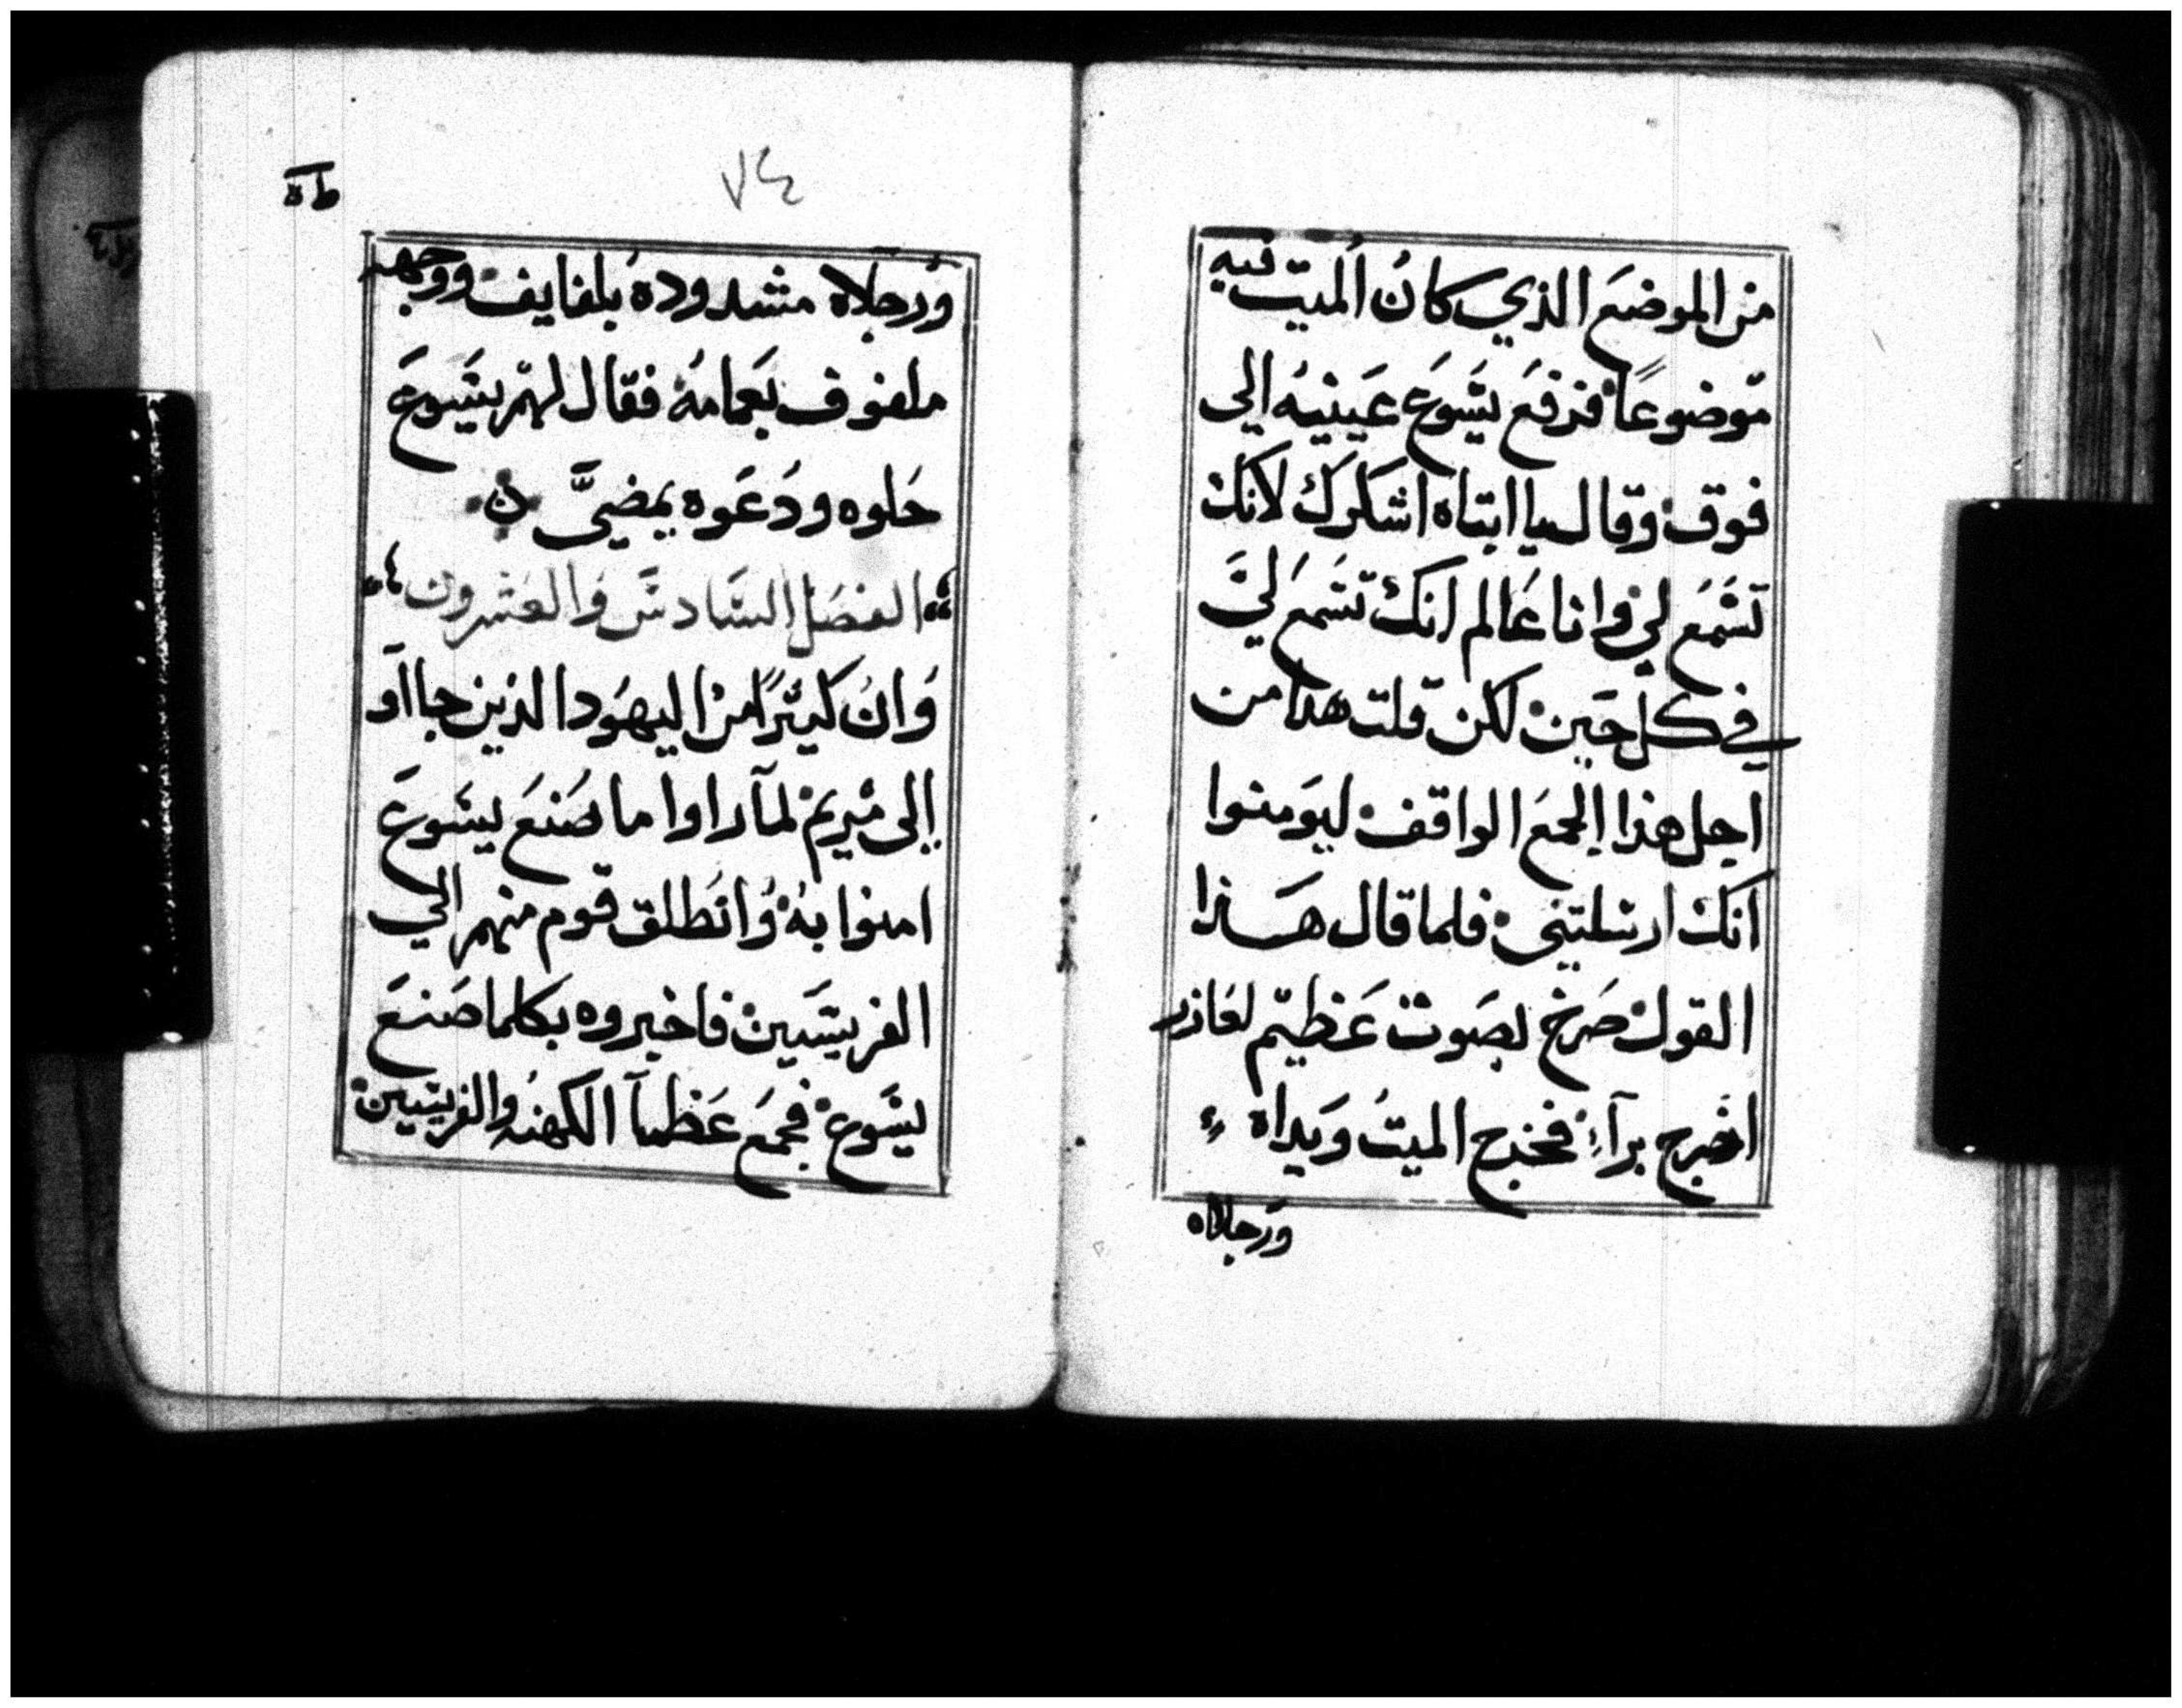 من الموضع الذي كان الميت فيه
موضوعاً فرفع يسوع عينيه الي
فوق وقال يا ابتاه اشكرك لانك
تسمع لي وانا عالم انك تسمع لي
في كل حين لكن قلت هدا من
اجل هذا الجمع الواقف ليومنوا
انك ارسلتني فلما قال هذا
القول صرخ بصوت عظيم لعازر
اخرج برآء فخرج الميت ويداه
ورجلاه
٧٤
ورجلاه مشدوده بلفايف ووجهه
ملفوف بعمامه فقال لهم يسوع
حلوه ودعوه يمضي
الفصل السادس والعشرون
وان كثيرًا من اليهود الذين جااو
إلى مريم لما راوا ما صنع يسوع
امنوا به وانطلق قوم منهم الي
الفريسيين فاخبروه بكلما صنع
يسوع فجمع عظما الكهنه والفريسيين